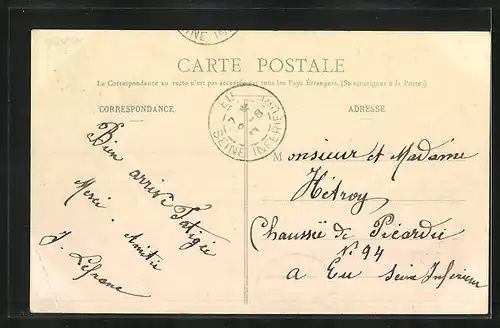 CARTE POSTALE
La Correspondance au recto n'est pas acceptée par tous les Pays Étrangers. (Se renseigner à la Poste.)
CORRESPONDANCE
ADRESSE
SEINE INFERIEURE
Bien arrivé Fatigué
Merci. Amitié
J. Lefranc
Monsieur et Madame
Hétroy
Chaussée de Picardie
N. 94
a Eu Seine Inferieur